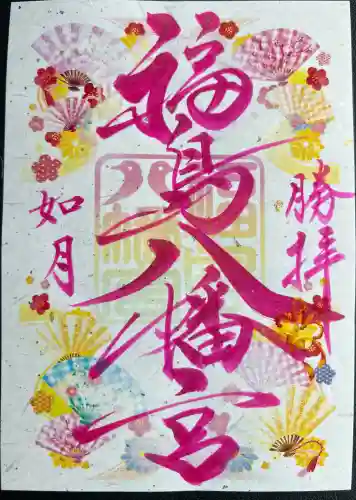 勝拝
福島八幡宮
如月